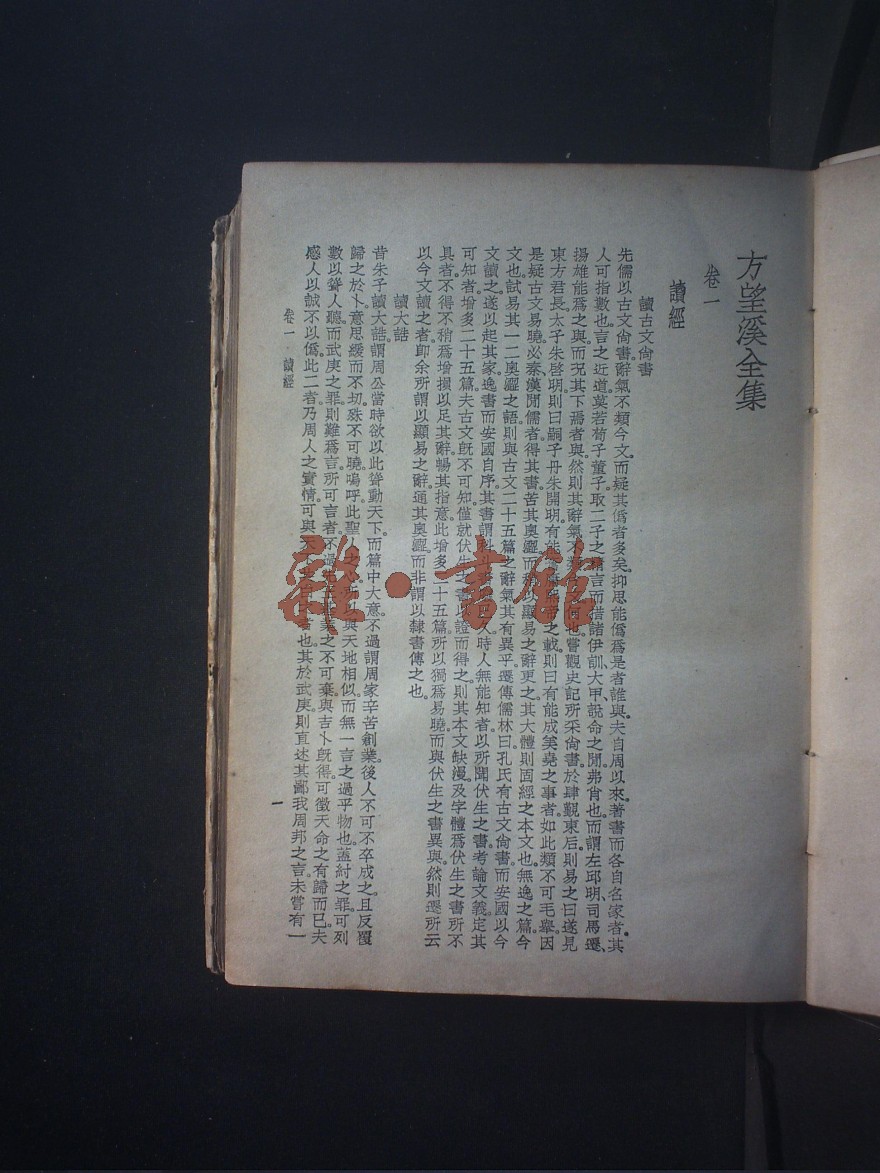 方望溪全集
卷一
讀經
讀古文尙書
先儒以古文尙書辭氣不類今文。而疑其僞者多矣。抑思能僞爲是者誰與。夫自周以來。著書而各自名家者。其
人可指數也。言之近道。莫若荀子董子。取二子之精言。而措諸伊訓、大甲、說命之閒。弗肖也。而謂左邱明、司馬遷、
揚雄能爲之與。而況其下焉者與。然則其辭氣不類今文何也。嘗觀史記所采尙書。於肆覲東后。則易之曰遂見
東方君長。太子朱啓明。則曰嗣子丹朱開明。有能奮庸熙帝之載。則曰有能成美堯之事者。如此類不可毛舉。因
是疑古文易曉。必秦漢閒儒者得其書。苦其奧澀。而稍以顯易之辭更之。其大體則固經之本文也。無逸之篇。今
文也。試易其一二奧澀之語。則與古文二十五篇之辭氣其有異乎。遷傳儒林曰。孔氏有古文尙書。而安國以今
文讀之。遂以起其家逸書。而安國自序其書謂科斗書廢已久。時人無能知者。以所聞伏生之書。考論文義。定其
可知者。增多二十五篇。夫古文旣不可知。僅就伏生之書以證而得之。則其本文缺漫。及字體爲伏生之書所不
具者。不得不稍爲增損以足其辭。暢其指意。此增多二十五篇。所以獨爲易曉。而與伏生之書異與。然則遷所云
以今文讀之者。卽余所謂以顯易之辭。通其奧澀。而非謂以隸書傳之也。
讀大誥
昔朱子讀大誥。謂周公當時欲以此聳動天下。而篇中大意。不過謂周家辛苦創業。後人不可不卒成之。且反覆
歸之於卜。意思緩而不切。殊不可曉。嗚呼。此聖人之心所以與天地相似。而無一言之過乎物也。蓋紂之罪。可列
數以聳人聽。而武庚之罪。則難爲言。所可言者。不過先王基業之不可棄。與吉卜旣得。可徵天命之有歸而已。夫
感人以誠不以僞。此二者。乃周人之實情可與天下共白之者也。其於武庚。則直述其鄙我周邦之言。未嘗有一
卷一 讀經
一
雜·書館